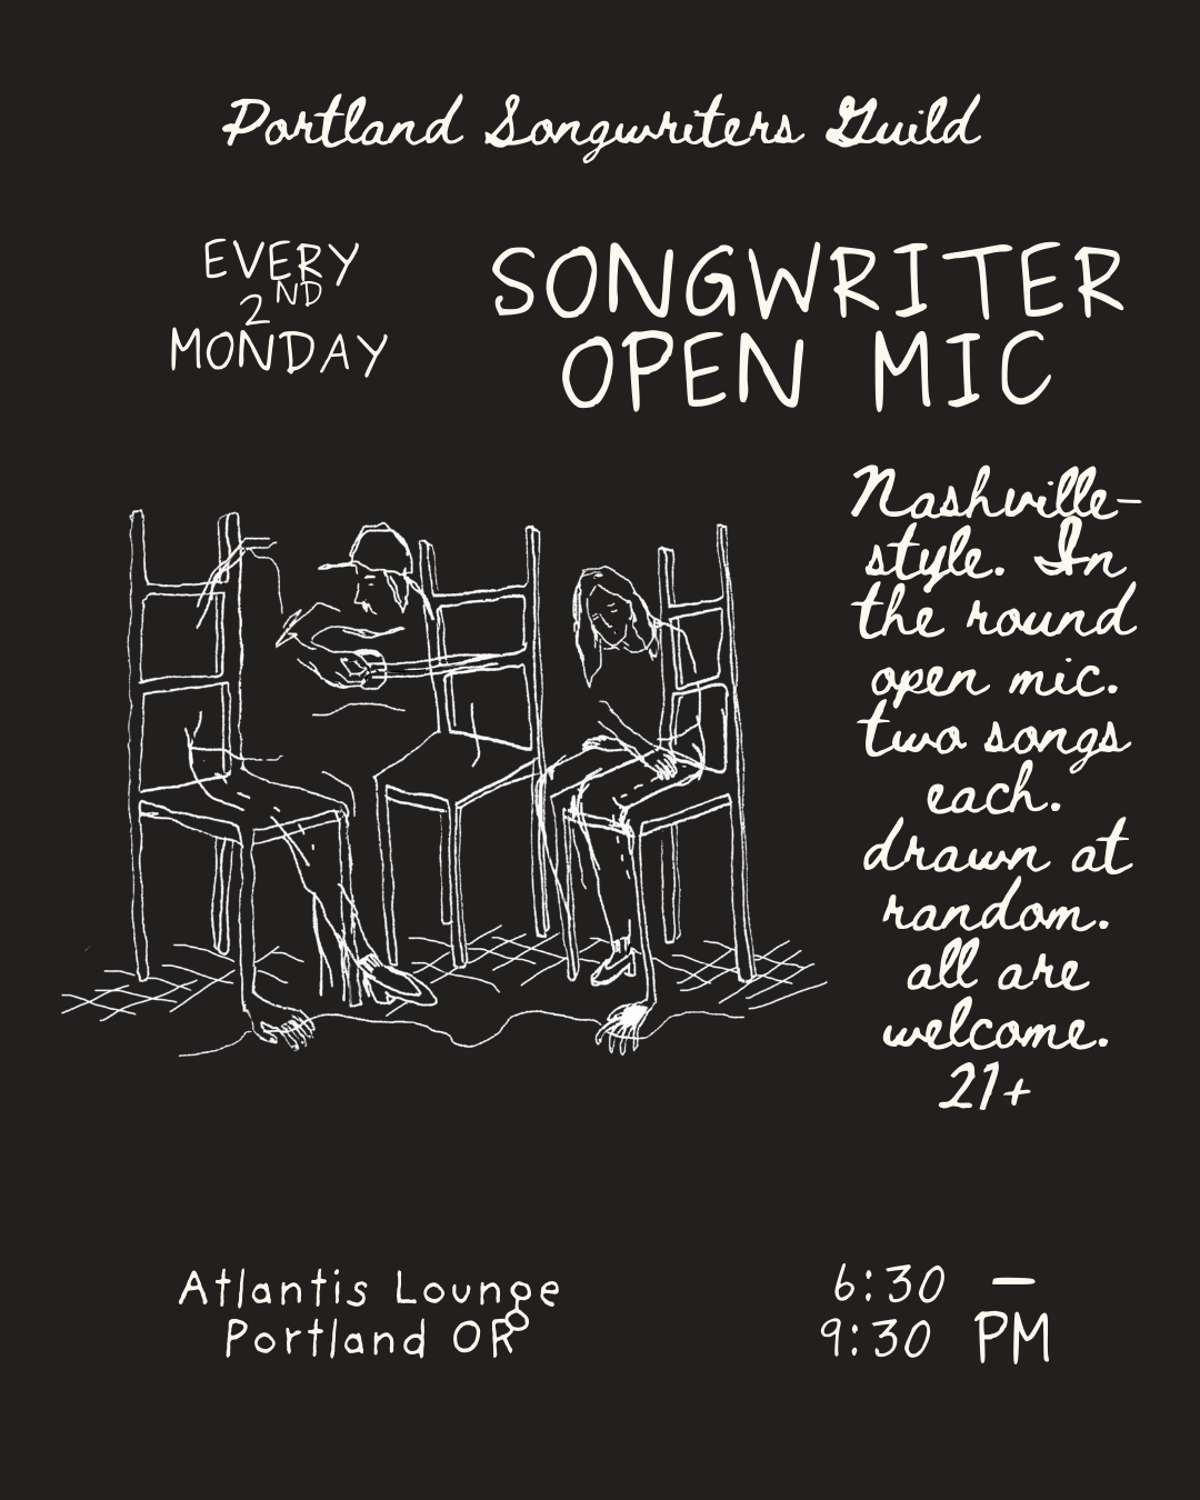 Portland Songwriters Guild
EVERY
2ND
MONDAY
SONGWRITER
OPEN MIC
Nashville-
style. In
the round
open mic.
two songs
each.
drawn at
random.
all are
welcome.
21+
Atlantis Lounge
Portland OR
6:30 —
9:30 PM